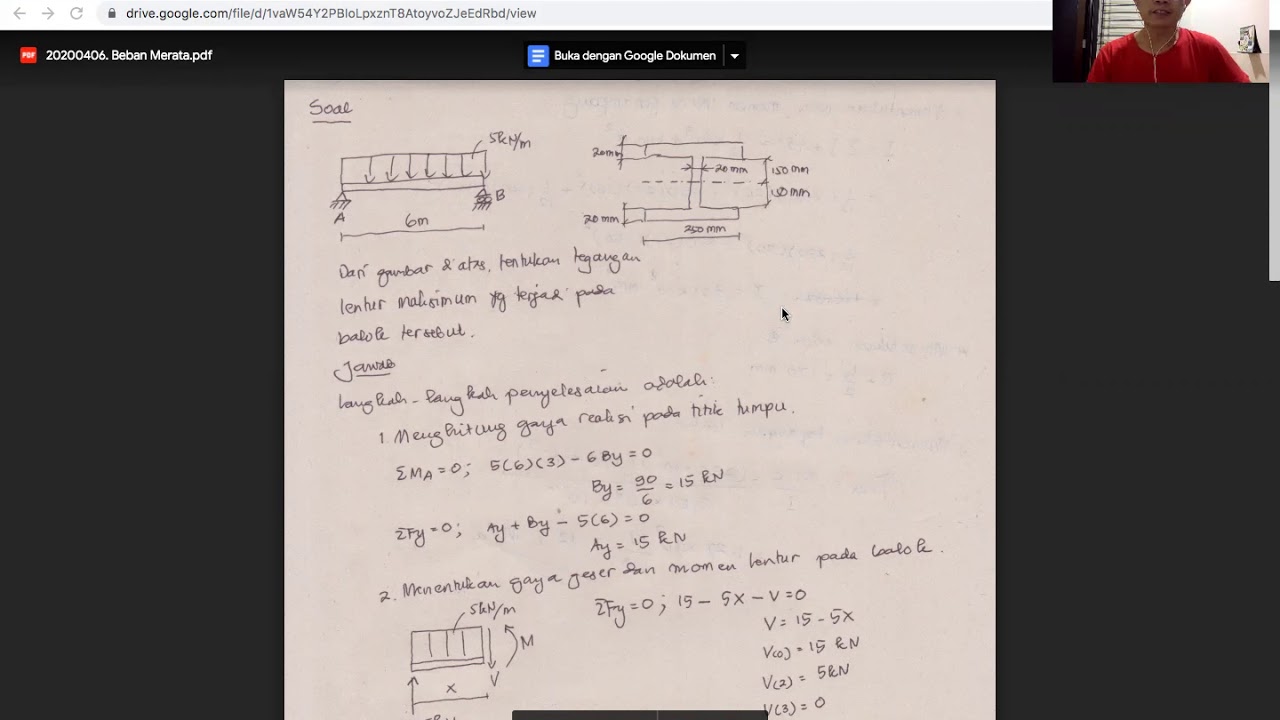 drive.google.com/file/d/1vaW54Y2PBIoLpxznT8AtoyvoZJeEdRbd/view
PDF 20200406. Beban Merata.pdf
Buka dengan Google Dokumen
Soal
5kN/m
A
B
6m
20mm
20 mm
150 mm
150 mm
20 mm
250 mm
Dari gambar di atas, tentukan tegangan
lentur maksimum yg terjadi pada
balok tersebut.
Jawab
Langkah-langkah penyelesaian adalah:
1. Menghitung gaya reaksi pada titik tumpu.
ΣMA=0; 5(6)(3) - 6By=0
By = 90/6 = 15 kN
ΣFy=0; Ay + By - 5(6) = 0
Ay = 15 kN
2. Menentukan gaya geser dan momen lentur pada balok.
5kN/m
M
V
x
ΣFy=0; 15 - 5x - V=0
V = 15 - 5x
V(0) = 15 kN
V(2) = 5kN
V(3) = 0